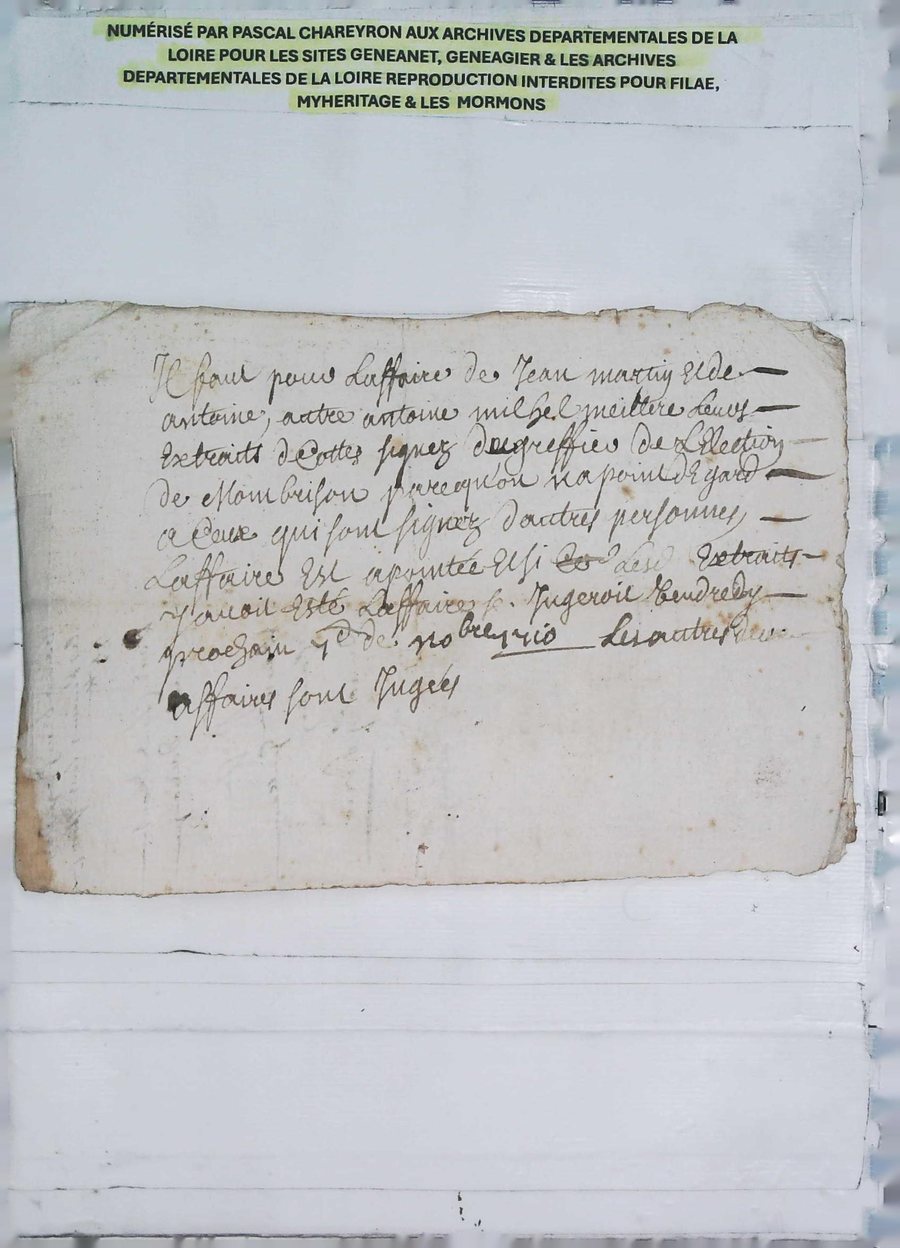 NUMÉRISÉ PAR PASCAL CHAREYRON AUX ARCHIVES DEPARTEMENTALES DE LA
LOIRE POUR LES SITES GENEANET, GENEAGIER & LES ARCHIVES
DEPARTEMENTALES DE LA LOIRE REPRODUCTION INTERDITES POUR FILAE,
MYHERITAGE & LES MORMONS
Il faut pour Laffaire de Jean martin Et de
antoine, autre antoine milhel meillere Leurs
Extraits de Cottes signez du greffier de LEllection
de Mombrison parcequ'on na point dEgard
a Ceux qui sont signez d'autres personnes
Laffaire Est apointée Et si Extraits
y avoit Esté Laffaire se Jugeroit Vendredy
prochain 7e de 9obre 1710 Les autres deux
affaires sont Jugées